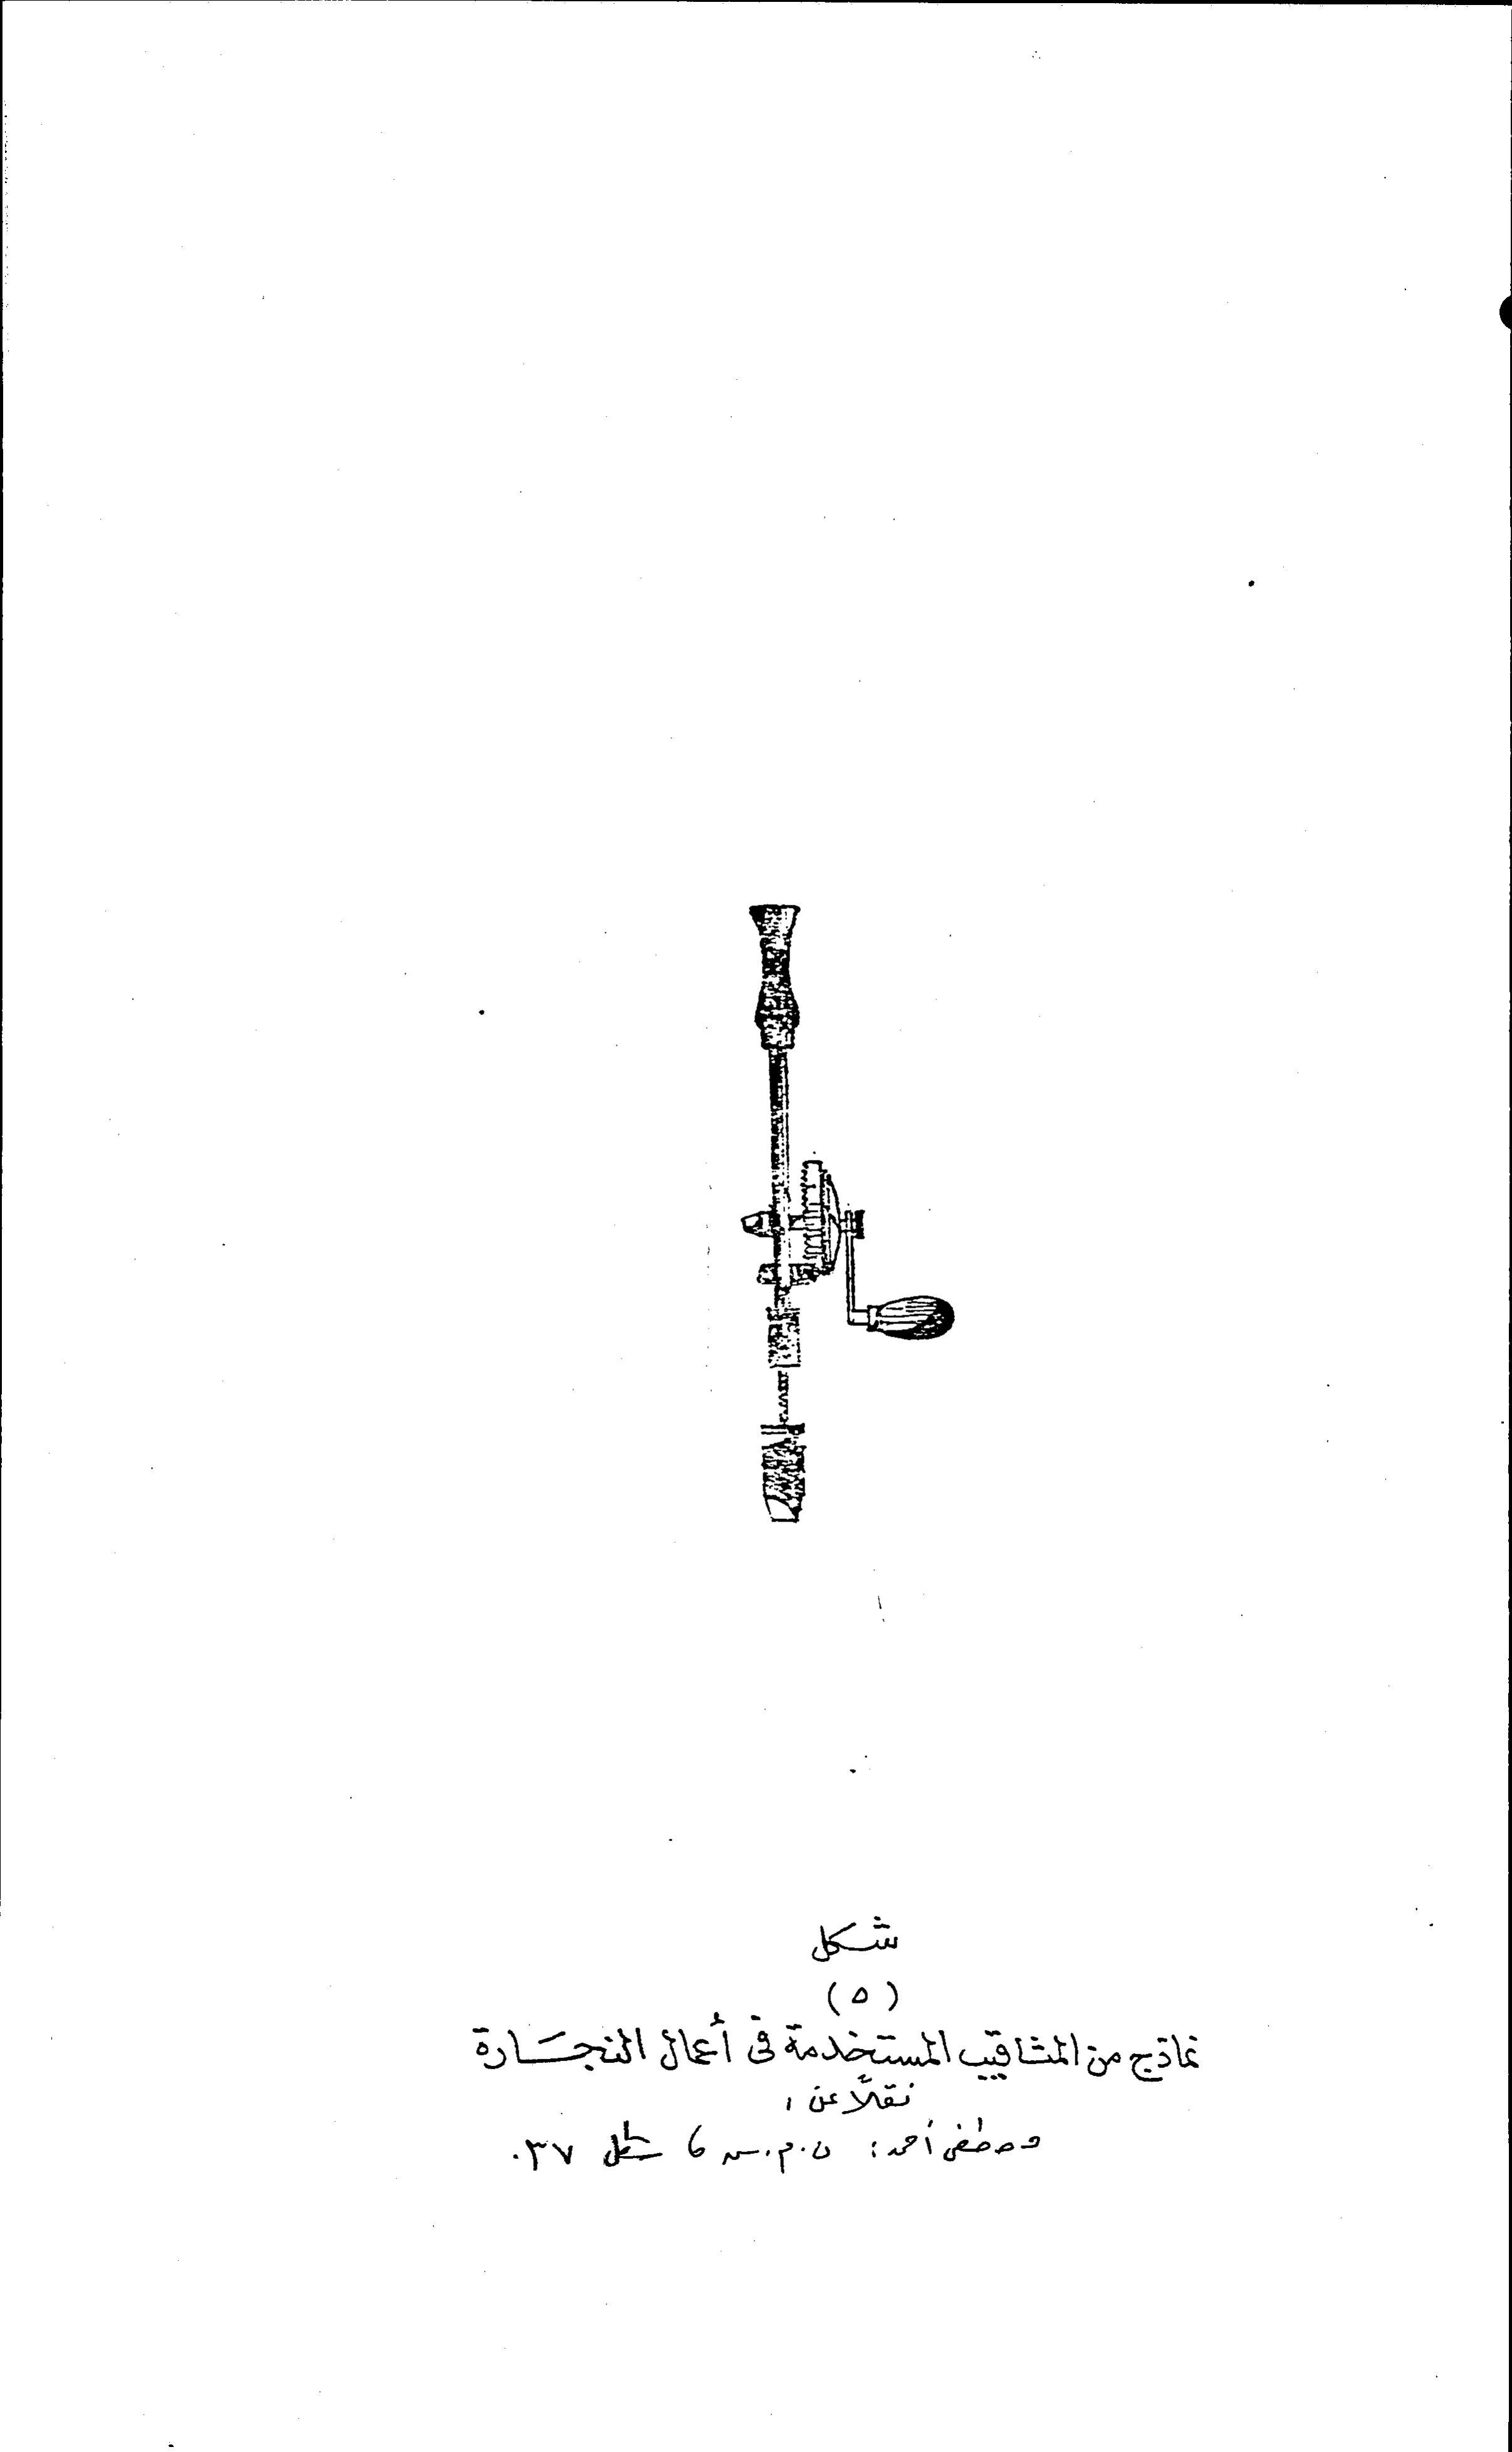 شكل
(٥)
نماذج من المثاقيب المستخدمة فى أعمال النجارة
نقلاً عن :
مصطفى أحمد : ن.م.س ، شكل ٣٧.